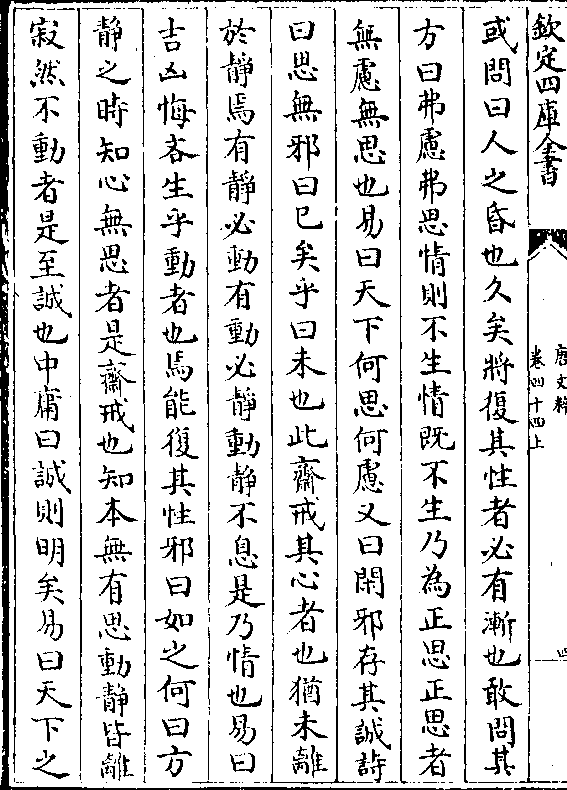 欽定四庫全書
唐文粹
卷四十四上
四
或問曰人之昏也久矣將復其性者必有漸也敢問其
方曰弗慮弗思情則不生情既不生乃為正思正思者
無慮無思也易曰天下何思何慮又曰閑邪存其誠詩
曰思無邪曰已矣乎曰未也此齋戒其心者也猶未離
於静焉有静必動有動必静動静不息是乃情也易曰
吉凶悔吝生乎動者也焉能復其性邪曰如之何曰方
静之時知心無思者是齋戒也知本無有思動静皆離
寂然不動者是至誠也中庸曰誠則明矣易曰天下之